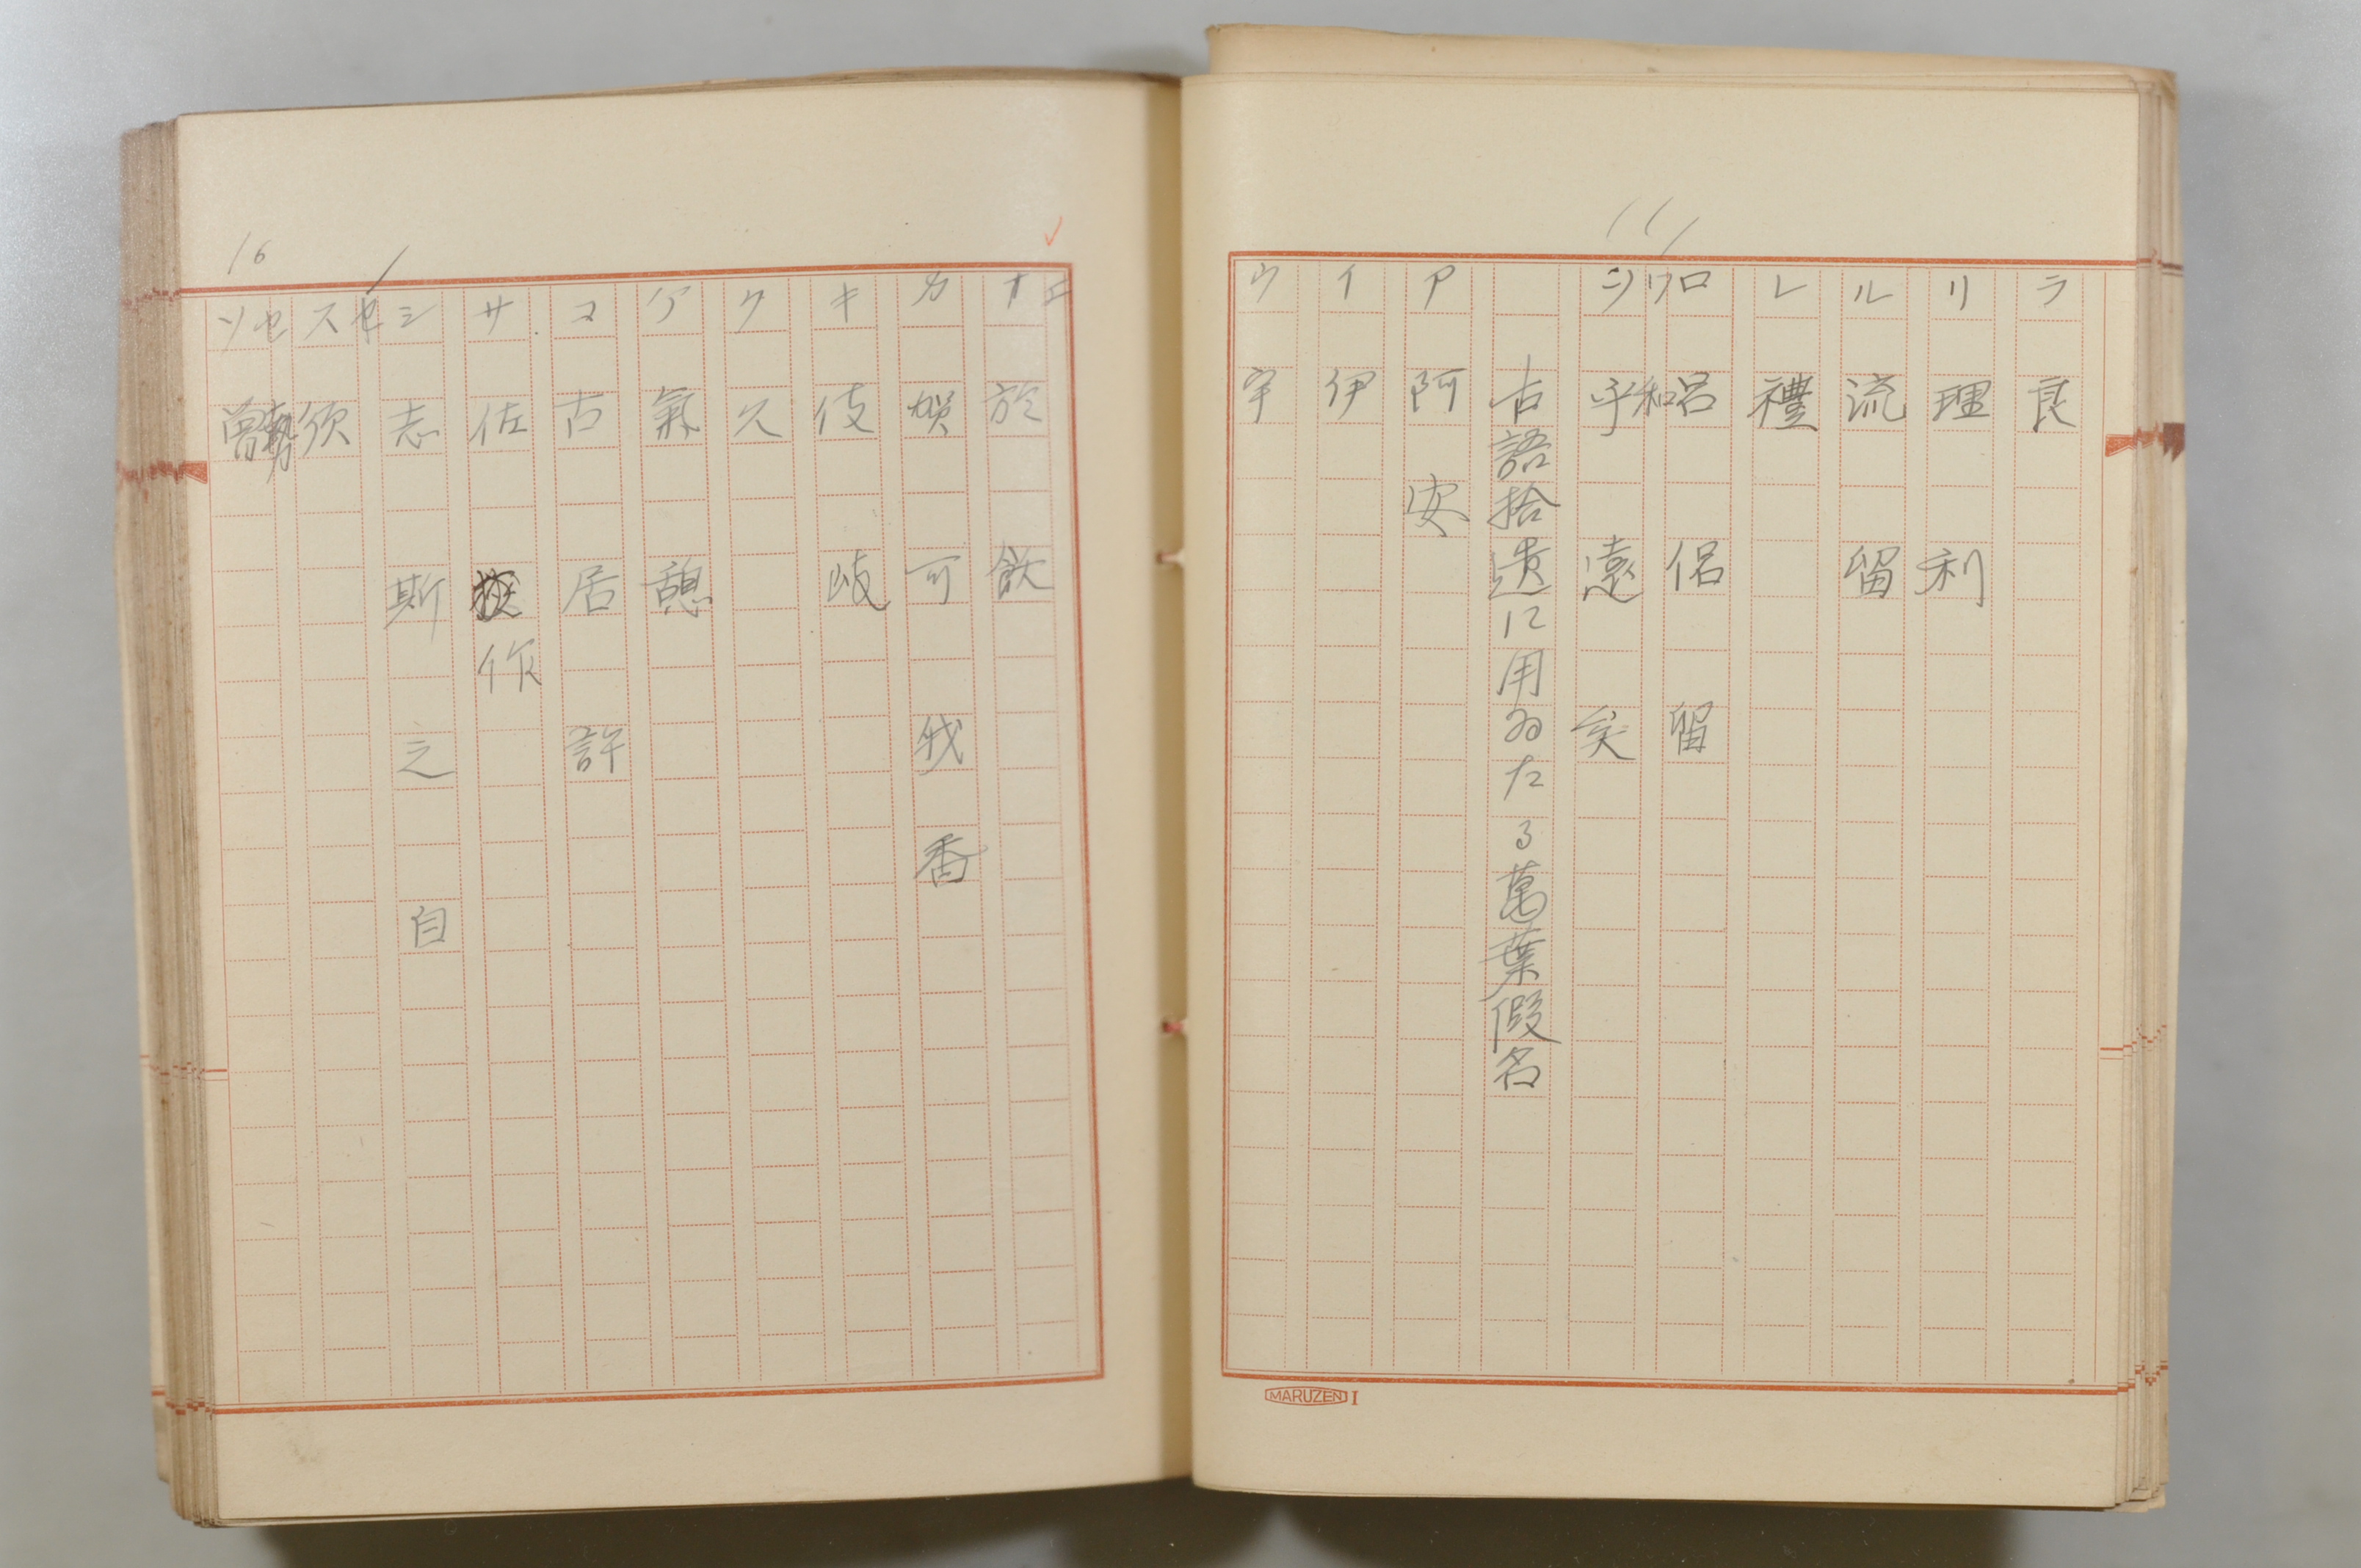 ラ 良
リ 理 利
ル 流 留
レ 禮
ロ 呂 侶 留
ワ 和
乎 遠
古語拾遺に用ゐたる萬葉假名
ア 阿 安
イ 伊
ウ 宇
MARUZEN I
エ
オ 於 飫
カ 賀 可 我 香
キ 伎 岐
ク 久
氣 憩
コ 古 居 許
サ 佐 作
シ 志 斯 之 自
セ
ス 須
セ 勢
ソ 曽
16